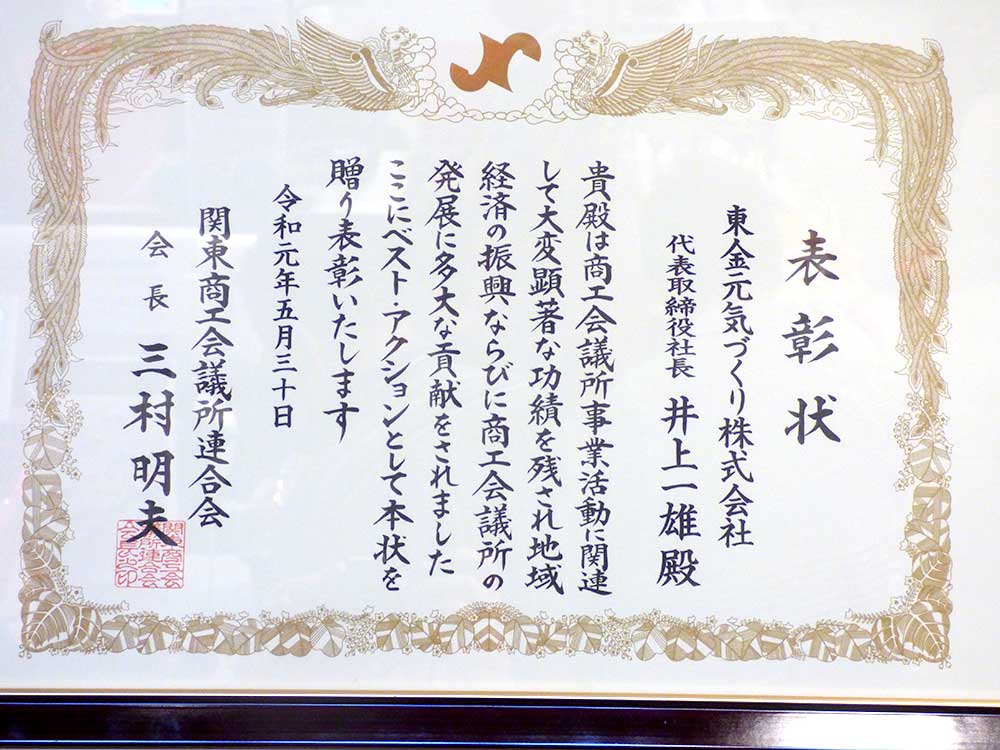 表彰状
東金元気づくり株式会社
代表取締役社長 井上一雄殿
貴殿は商工会議所事業活動に関連
して大変顕著な功績を残され地域
経済の振興ならびに商工会議所の
発展に多大な貢献をされました
ここにベスト・アクションとして本状を
贈り表彰いたします
令和元年五月三十日
関東商工会議所連合会
会長 三村明夫